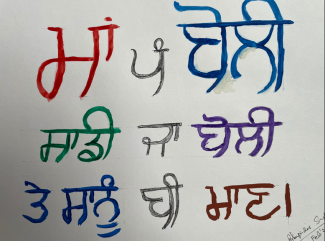 ਮਾਂ ਪੰ ਬੋਲੀ
ਸਾਡੀ ਜਾ ਬੋਲੀ
ਤੇ ਸਾਨੂੰ ਬੀ ਮਾਣ।